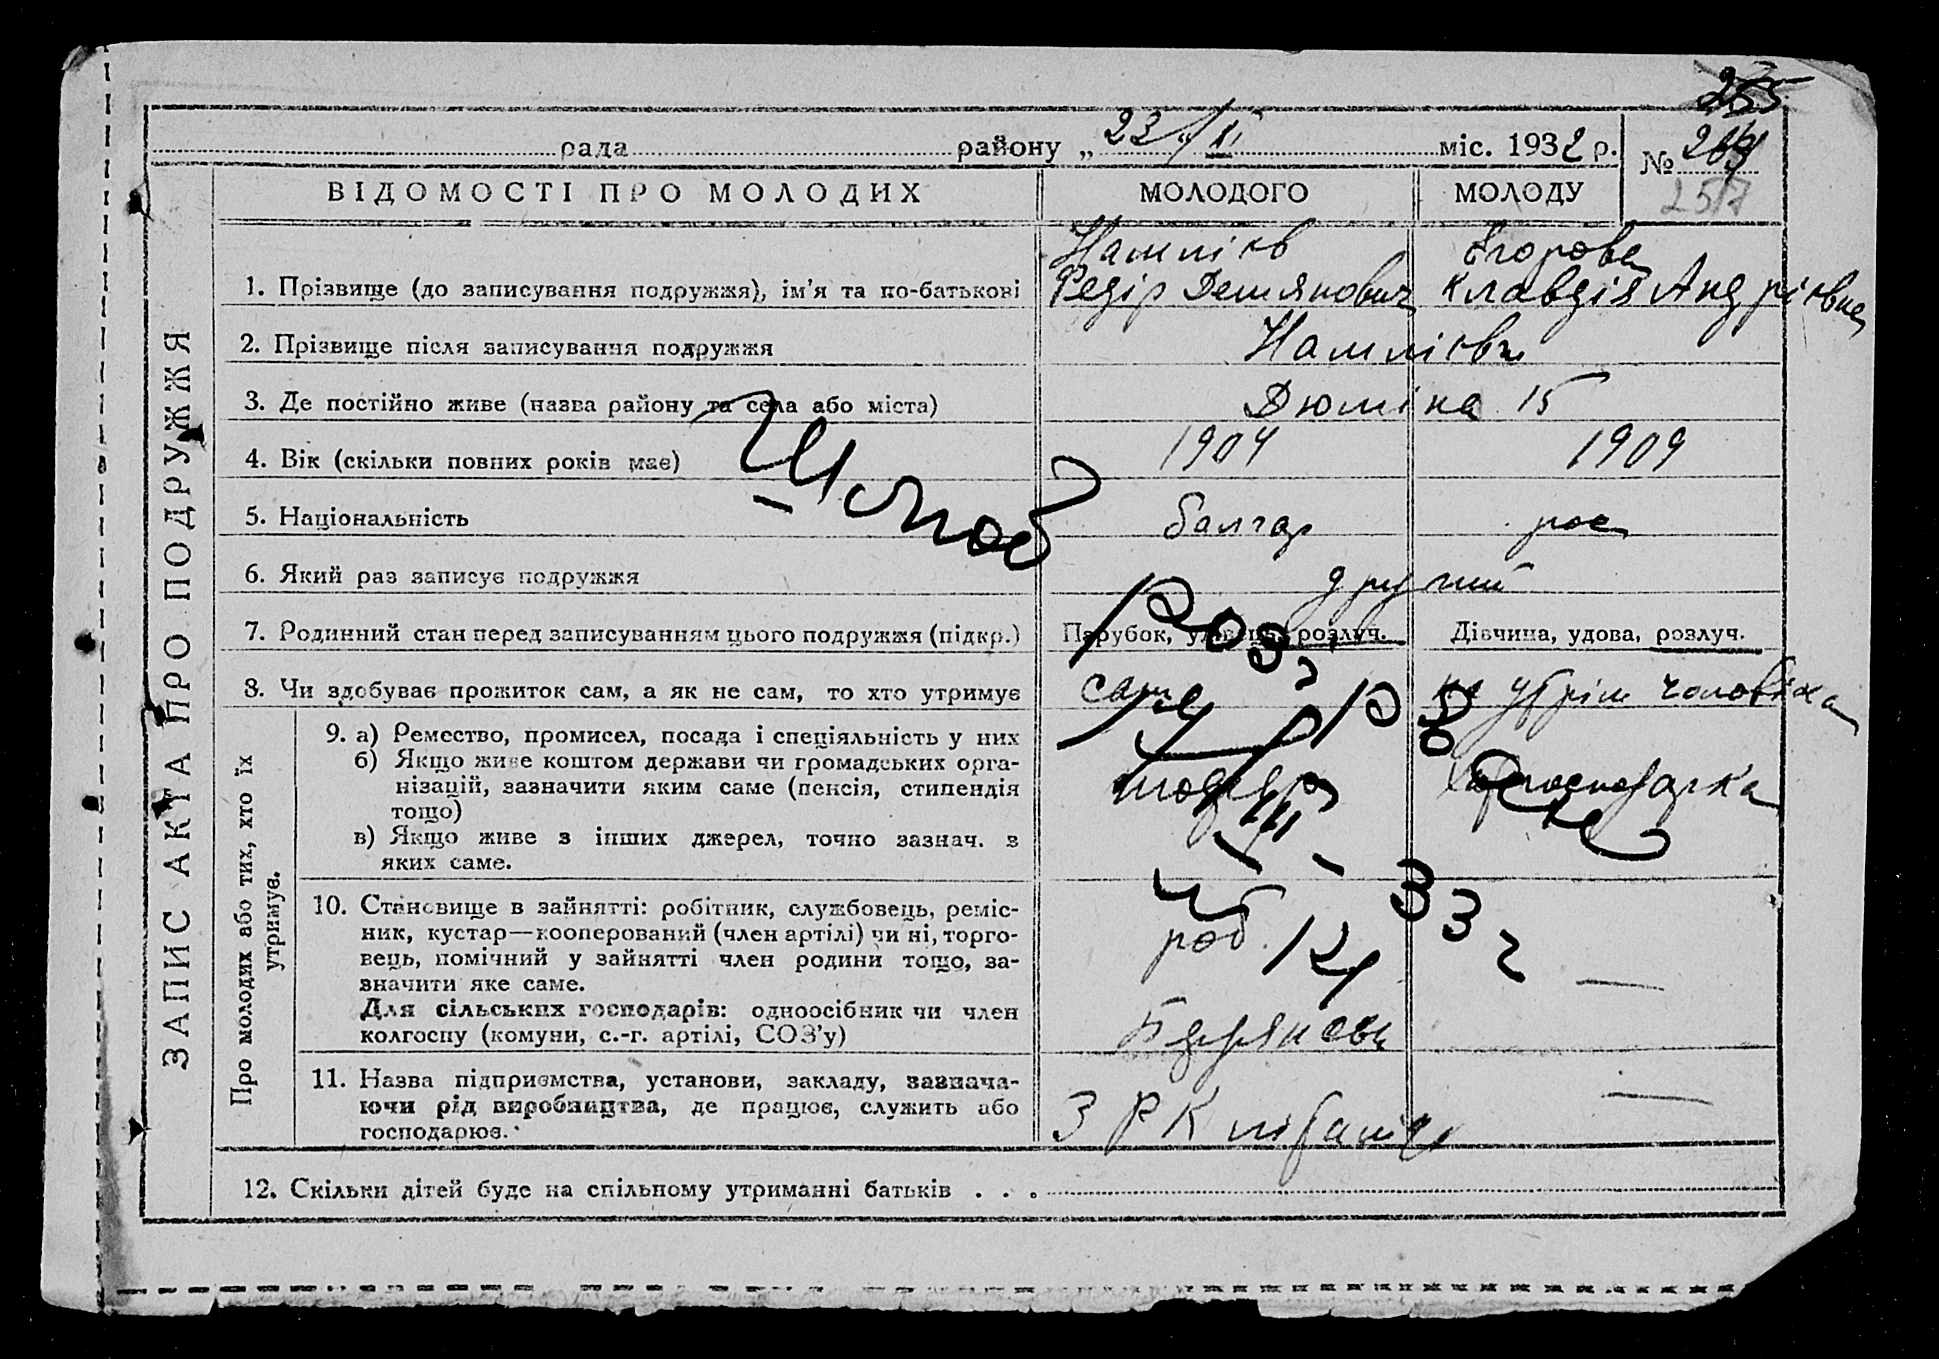 235
рада району „ 23 " / II міс. 1932 р.
№ 
257
ВІДОМОСТІ ПРО МОЛОДИХ МОЛОДОГО МОЛОДУ
ЗАПИС АКТА ПРО ПОДРУЖЖЯ
1. Прізвище (до записування подружжя), ім'я та по-батькові
Федір Демянович
Егорова
Клавдія Андріївна
2. Прізвище після записування подружжя
3. Де постійно живе (назва району та села або міста) Дюміна 15
4. Вік (скільки повних років має) 1904 1909
5. Національність болгар рос
6. Який раз записує подружжя другий
7. Родинний стан перед записуванням цього подружжя (підкр.) Парубок, удівець, розлуч. Дівчина, удова, розлуч.
8. Чи здобуває прожиток сам, а як не сам, то хто утримує сам на утрім чоловіка
Про молодих або тих, хто їх
утримує.
9. а) Ремество, промисел, посада і спеціяльність у них
б) Якщо живе коштом держави чи громадських орга-
нізацій, зазначити яким саме (пенсія, стипендія
тощо)
в) Якщо живе з інших джерел, точно зазнач. з
яких саме.
10. Становище в зайнятті: робітник, службовець, реміс-
ник, кустар—кооперований (член артілі) чи ні, торго-
вець, помічний у зайнятті член родини тощо, за-
значити яке саме.
Для сільських господарів: одноосібник чи член
колгоспу (комуни, с.-г. артілі, СОЗ'у)
роб.
11. Назва підприємства, установи, закладу, зазнача-
ючи рід виробництва, де працює, служить або
господарює.
З Р К
12. Скільки дітей буде на спільному утриманні батьків . . .
Шлюб
Роз
33 г